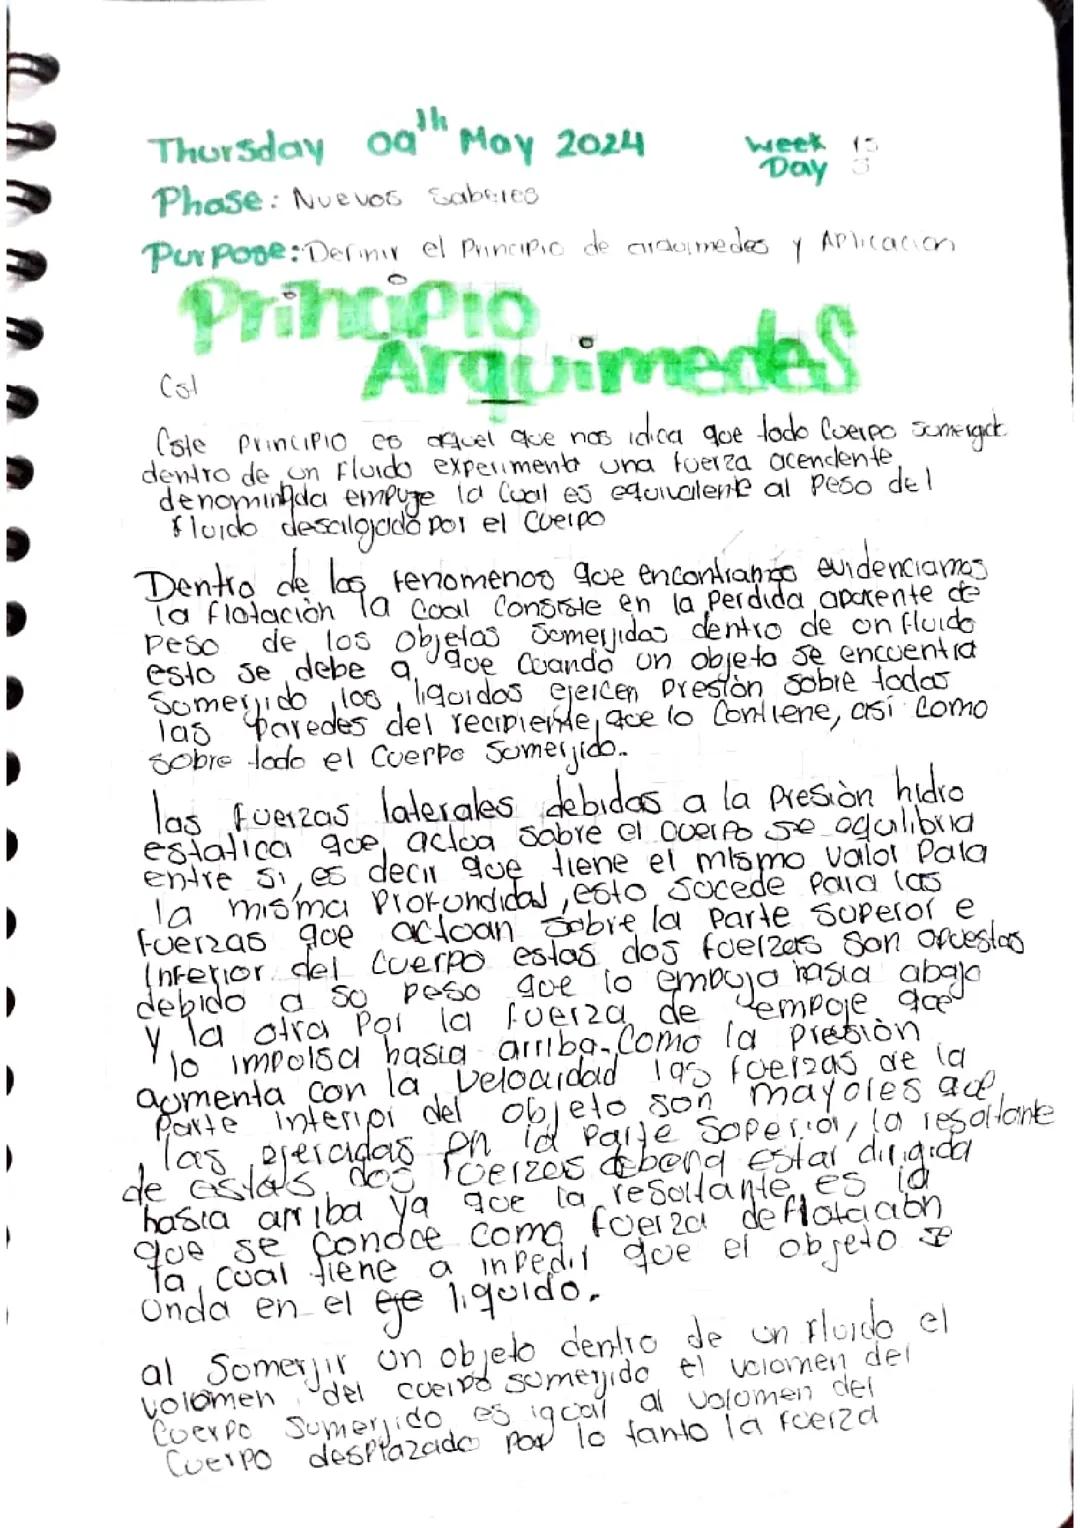 Thursday 09th May 2024
Week 15
Day 3
Phase: Nuevos Saberes
Purpose: Definir el Principio de arquimedes y Aplicacion
Principio
Arquimedes
Este principio es aquel que nos idica que todo Cuerpo sumergido
dentro de un fluido experimenta una fuerza acendente
denominada empuje la Cual es equivalente al peso del
fluido desalojado por el Cuerpo
Dentro de los fenomenos que encontramos evidenciamos
la flotaciòn la Coal Consiste en la perdida aparente de
peso de los objetos Somerjidos dentro de on fluido
esto se debe a que Cuando un objeto se encuentra
Somerjido los liquidos ejercen Presiòn sobre todas
las paredes del recipiente, que lo Contiene, asi Como
sobre todo el Cuerpo Somerjido.
las fuerzas laterales debidas a la presiòn hidro
estatica que actua sobre el cuerpo se equilibria
entre si, es decir que tiene el mismo valor Para
la misma Profundidad, esto sucede para las
fuerzas que actoan sobre la parte Superor e
Inferior del Cuerpo estas dos fuerzas son opuestas
debido a so peso que lo empuja hasia abajo
y la otra Por la fuerza de empoje que
lo impolsa hasia arriba. Como la presiòn
aumenta con la velocidad las fuerzas de la
Parte interior del objeto son mayores que
las ejercidas en la parte Soperior, la resoltante
de estas dos fuerzas debena estar dirigida
hasia arriba ya que la resoltante es la
que se conoce como fuerza de flotaciabn
la cual tiene a inpedir que el objeto se
unda en el eje liquido.
al Somerjir un objeto dentro de un fluido el
volomen del cuerpo sumerjido el volomen del
Cuerpo Sumerjido es igoal al volomen del
Cuerpo desplazado por lo tanto la fuerza